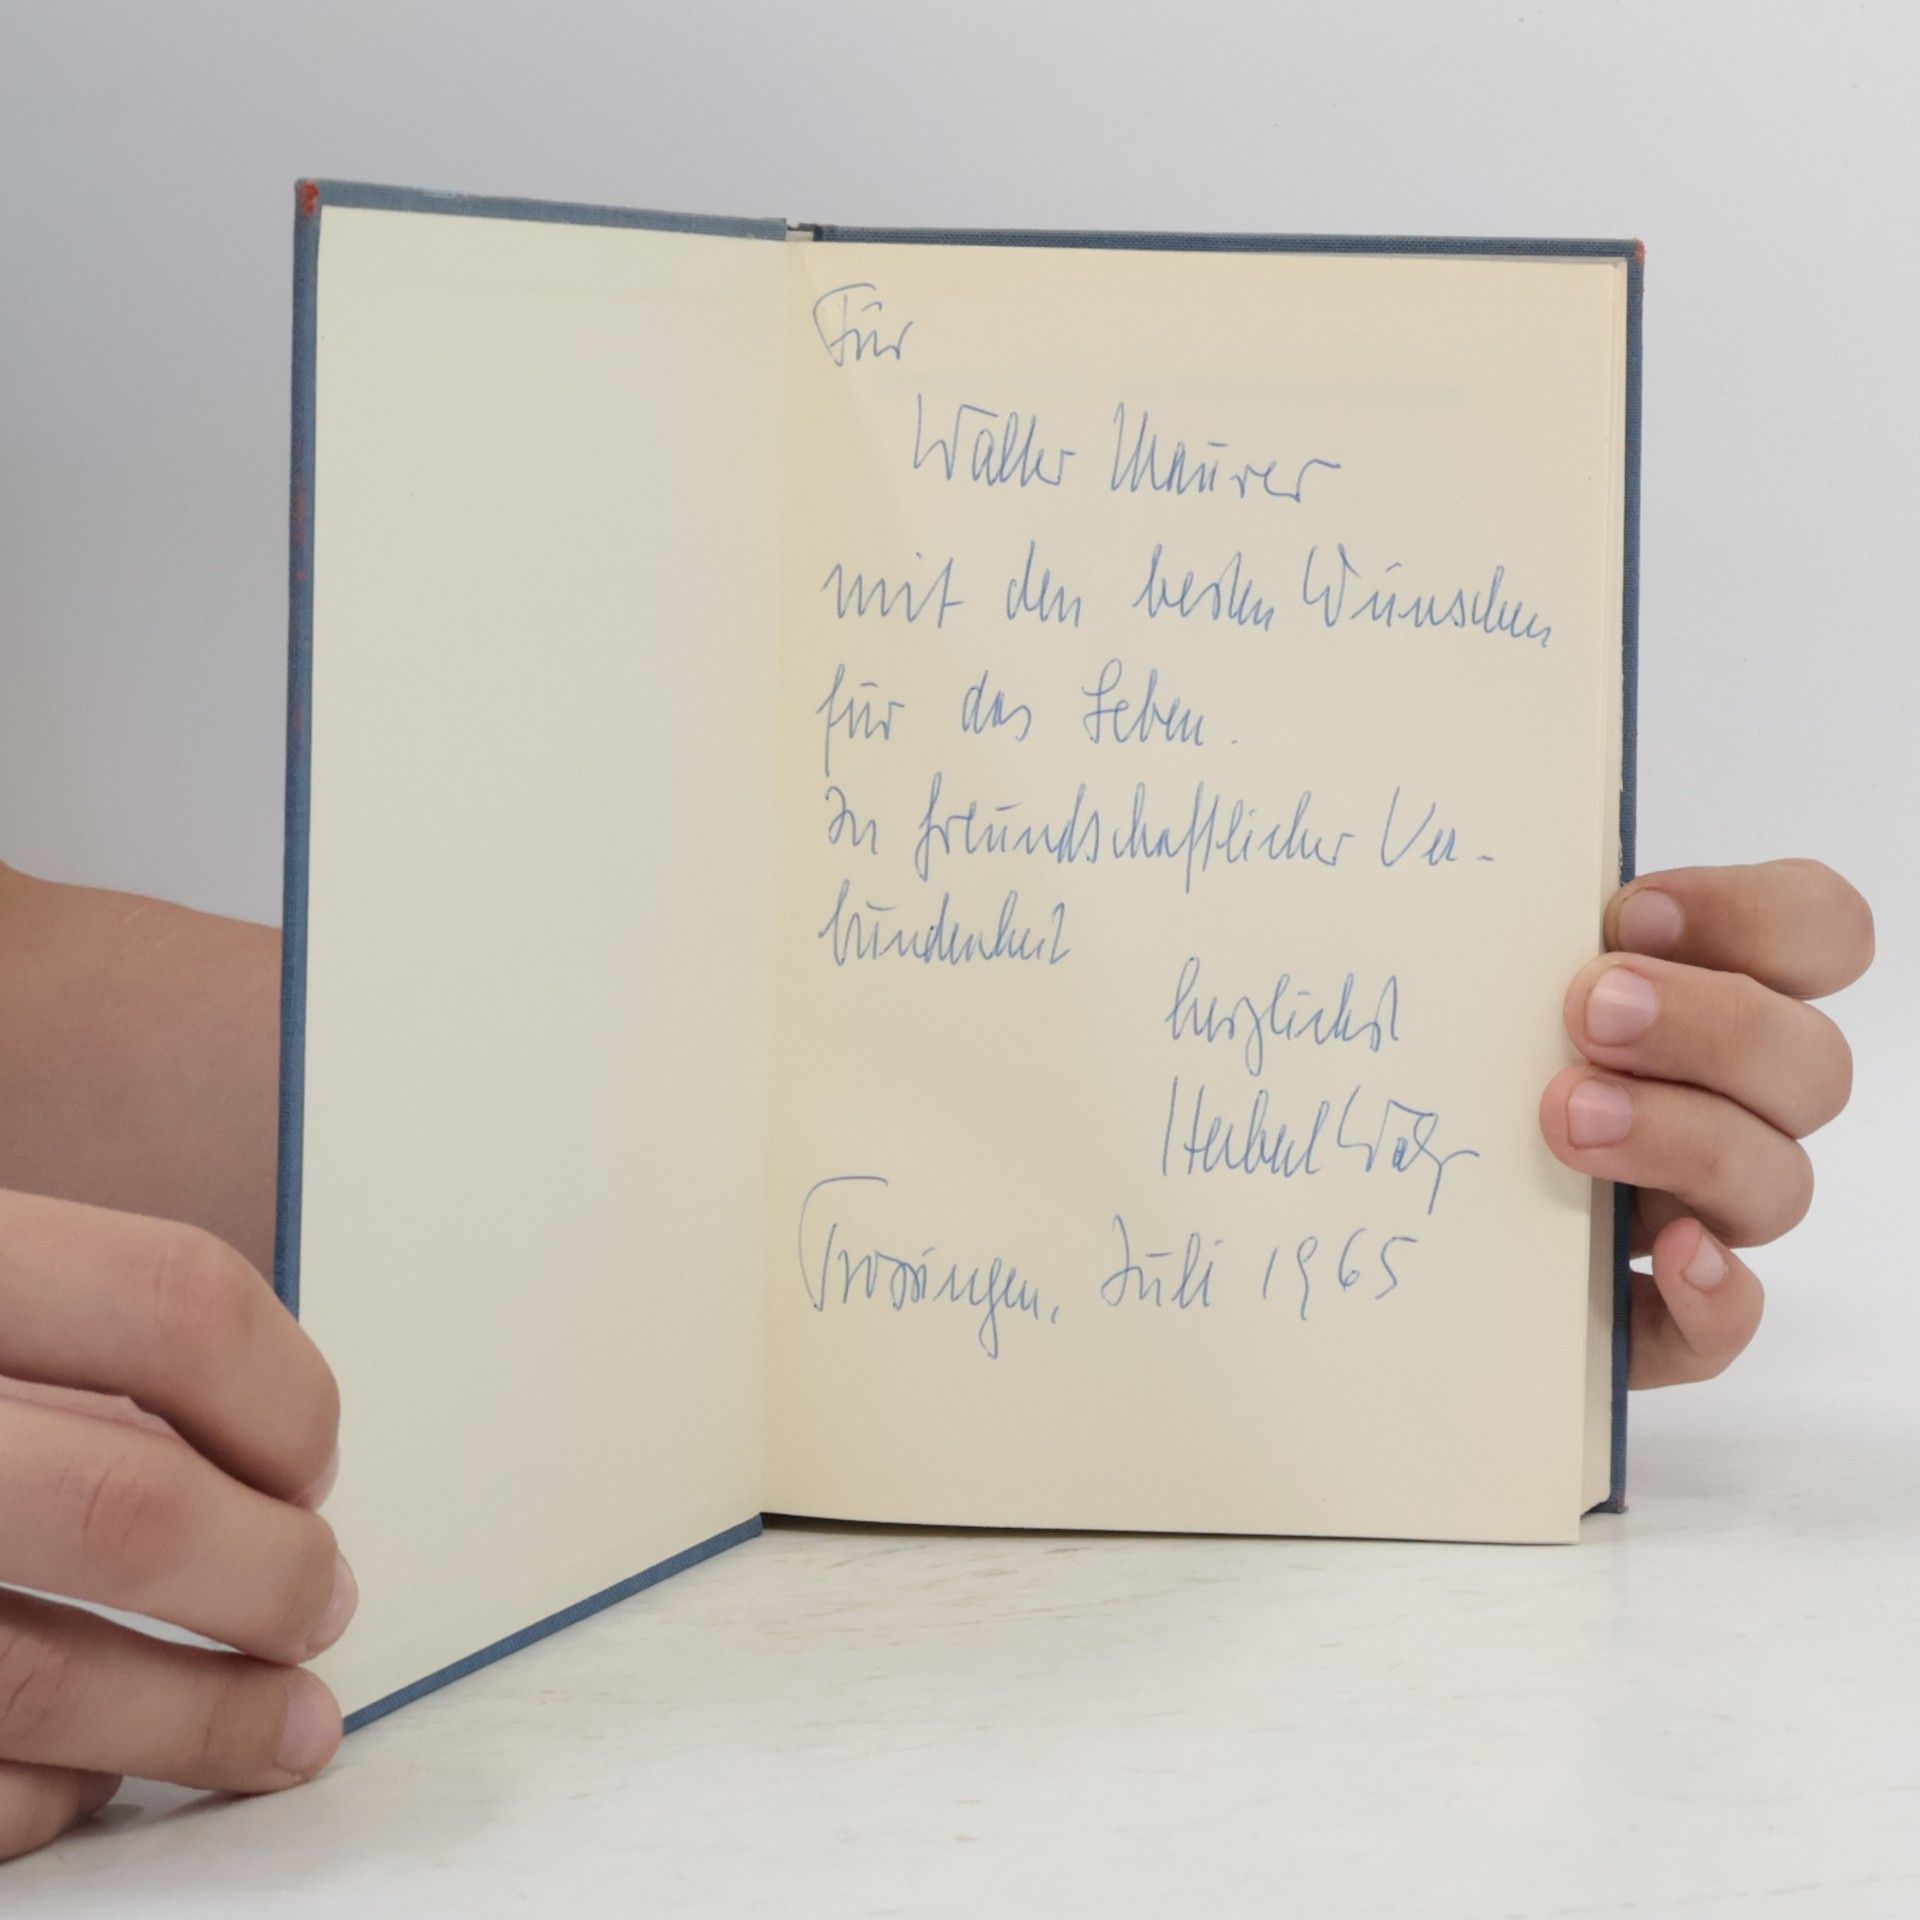 Für
Walter Maurer
mit den besten Wünschen
für das Leben.
In freundschaftlicher Ver-
bundenheit
herzlichst
Herbert
Trossingen, Juli 1965